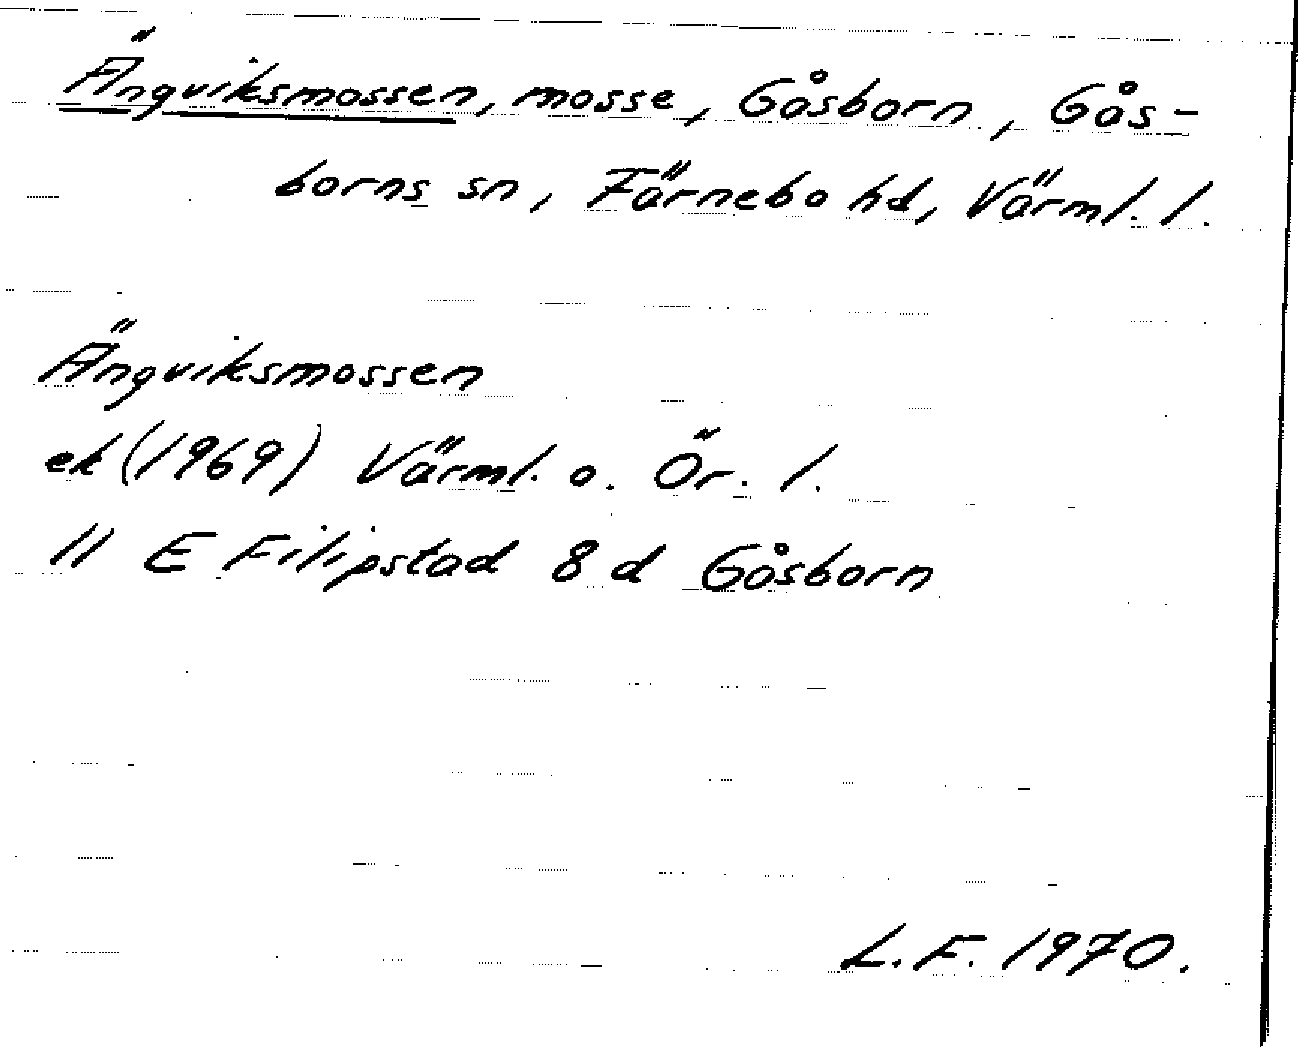 Ängviksmossen, mosse, Gåsborn, Gås-
borns sn, Färnebo hd, Värml. l.
Ängviksmossen
ek (1969) Värml. o. Ör. l.
11 E Filipstad 8 d Gåsborn
L. F. 1970.